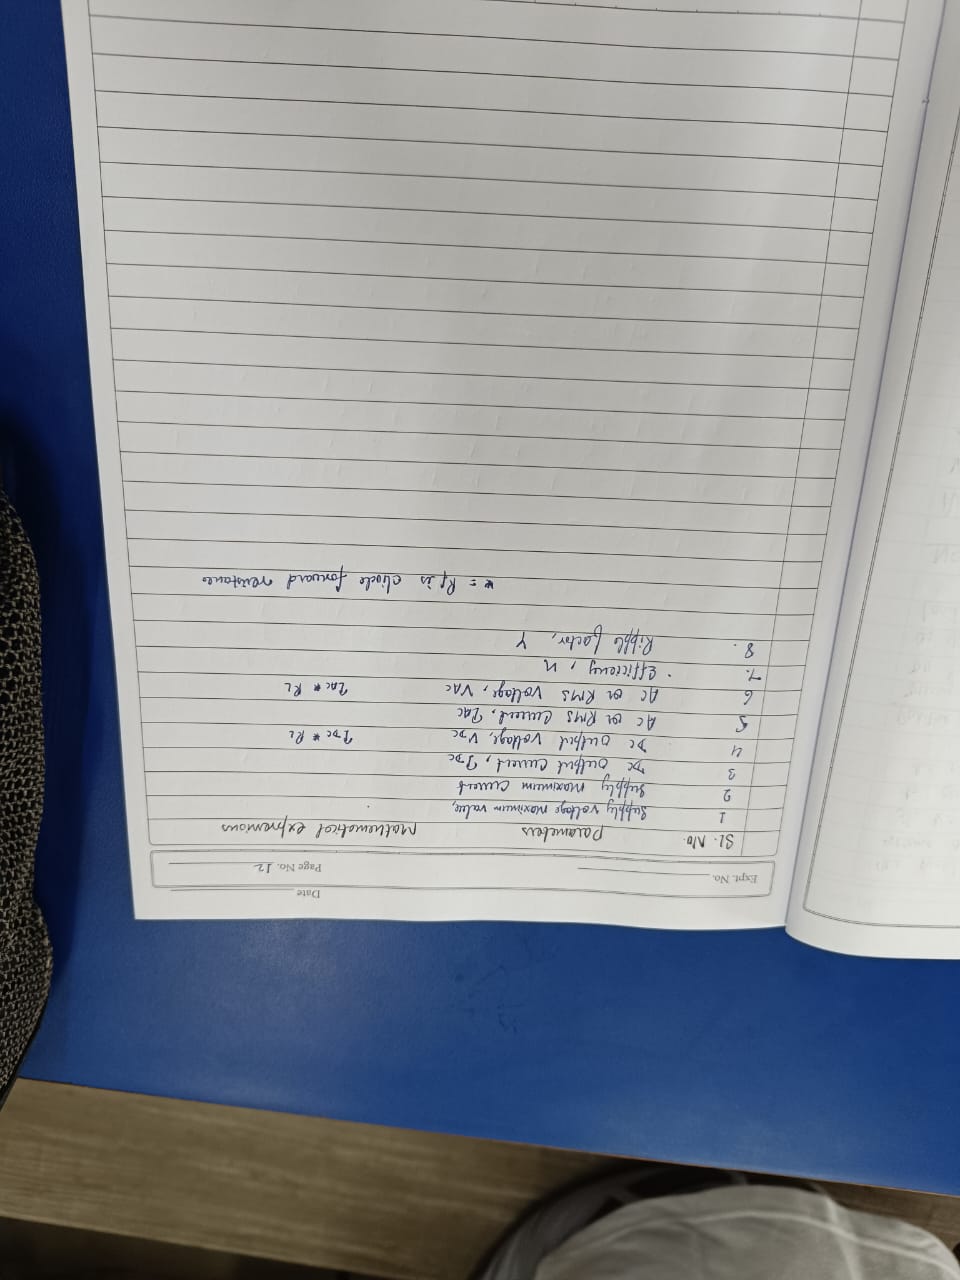 Date
Expt. No. Page No. 12
Sl. No. Parameters Mathematical expressions
1 Supply voltage maximum value,
2 Supply maximum current
3 DC output current, IDC
4 DC output voltage, VDC IDC * RL
5 AC or RMS current, IAC
6 AC or RMS voltage, VAC IAC * RL
7. Efficiency, η
8. Ripple factor, γ
* = Rf is diode forward resistance